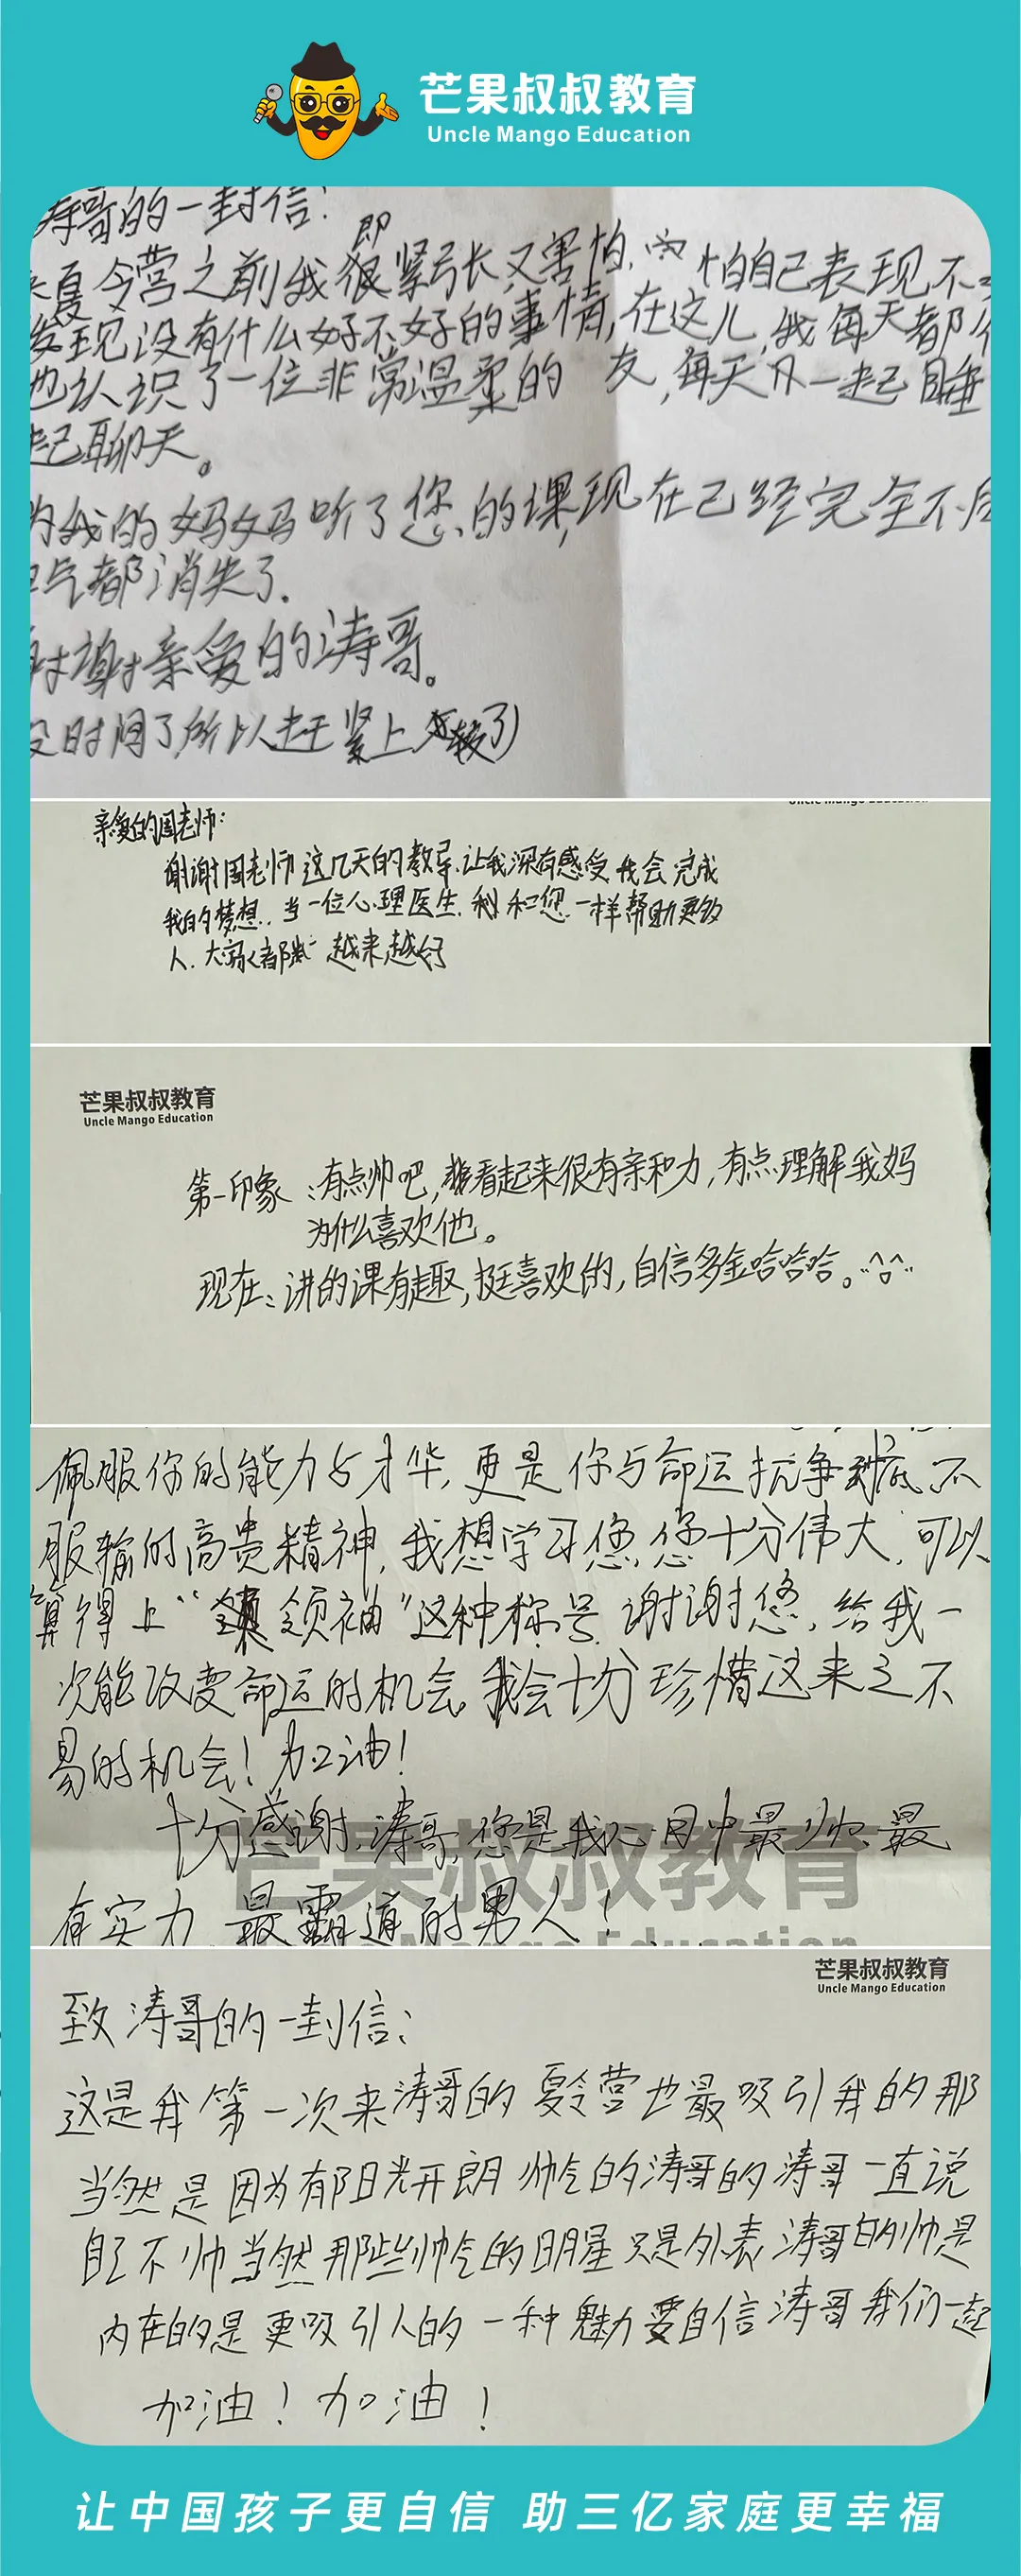 芒果叔叔教育
Uncle Mango Education
涛哥的一封信：
即
夏令营之前我很紧张,又害怕,怕自己表现不
发现没有什么好不好的事情,在这儿,我每天都
也认识了一位非常温柔的 友,每天 一起睡
起聊天。
为我的妈妈听了您的课,现在已经完全不
气都消失了.
谢谢亲爱的涛哥。
没时间了所以赶紧上 了)
Uncle Mango Education
亲爱的周老师：
谢谢周老师这几天的教导.让我深有感受 我会完成
我的梦想.当一位心理医生. 和您一样帮助更多
人.大家都 越来越好
芒果叔叔教育
Uncle Mango Education
第一印象：有点帅吧, 看起来很有亲和力,有点理解我妈
为什么喜欢他。
现在：讲的课有趣,挺喜欢的,自信多金哈哈哈。^^
佩服你的能力与才华,更是你与命运抗争到底,不
服输的高贵精神,我想学习您,您十分伟大,可以
算得上“ 领袖”这种称号.谢谢您,给我一
次能改变命运的机会,我会十分珍惜这来之不
易的机会!加油!
十分感谢,涛哥,您是我心目中最帅、最
有实力,最霸道的男人!
芒果叔叔教育
Mango Education
芒果叔叔教育
Uncle Mango Education
致涛哥的一封信：
这是我第一次来涛哥的夏令营也最吸引我的那
当然是因为有阳光开朗帅气的涛哥的涛哥一直说
自己不帅当然那些帅气的明星只是外表涛哥的帅是
内在的是更吸引人的一种魅力要自信涛哥我们一起
加油!加油!
让中国孩子更自信 助三亿家庭更幸福